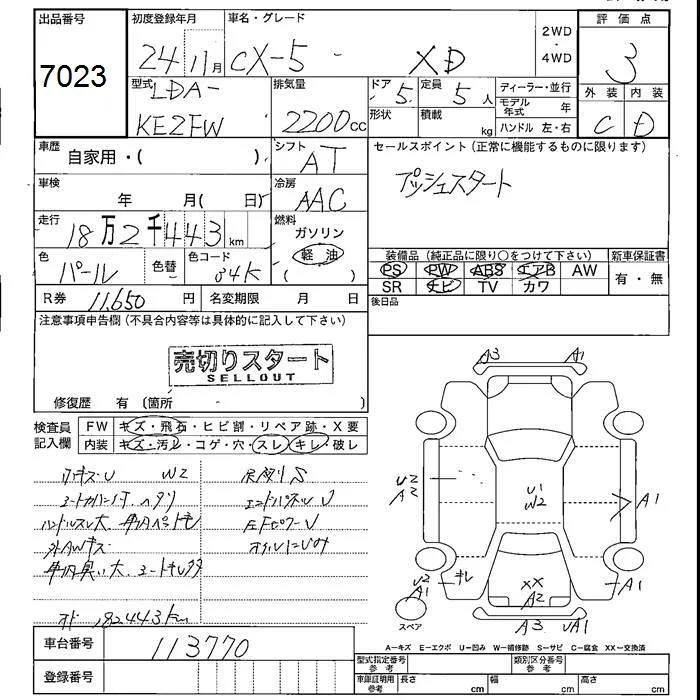 出品番号
7023
初度登録年月
24 11月
車名・グレード
CX-5 XD
2WD
・
4WD
評価点
3
外装 内装
C D
型式
LDA-
KE2FW
排気量
2200cc
ドア 5
形状
定員 5人
積載 kg
ディーラー・並行
モデル年式 年
ハンドル 左・右
車歴
自家用・( )
シフト
AT
セールスポイント(正常に機能するものに限ります)
プッシュスタート
車検
年 月( 日)
冷房
AAC
走行
18万2千443km
燃料
ガソリン
軽油
( )
色
パール
色替
色コード
34K
装備品(純正品に限り○をつけて下さい)
PS PW ABS エアB AW
SR ナビ TV カワ
新車保証書
有・無
R券 11,650円
名変期限 月 日
後日品
注意事項申告欄(不具合内容等は具体的に記入して下さい)
売切りスタート
SELLOUT
修復歴 有(箇所 )
検査員
記入欄
FW キズ・飛石・ヒビ割・リペア跡・X要
内装 キズ・汚レ・コゲ・穴・スレ・キレ・破レ
W2
ハンドルスレ大
外AWキズ
車内臭い大
182443km
エンドパネルU
A3 A1
U2
A2
U1
W2
A1
U2
A1
キレ
XX
A2
A1
スペア
A3 UA1
A-キズ E-エクボ U-凹み W-補修跡 S-サビ C-腐食 XX-交換済
車台番号
113770
登録番号
型式指定番号
参考
類別区分番号
参考
車庫証明用
参考
長さ cm
幅 cm
高さ cm